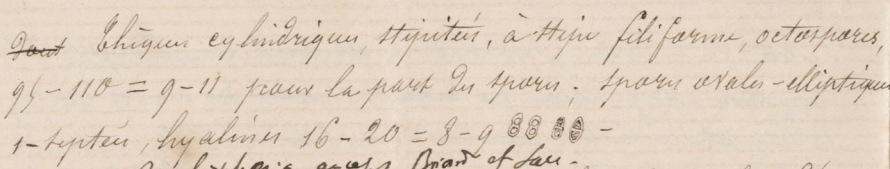 ~~Dont~~ Thèques cylindriques, stipitées, à stipe filiforme, octospores,
95-110 = 9-11 pour la part des spores; spores ovales-elliptiques
1-septées, hyalines 16-20 = 8-9 -
Briard et Sacc.